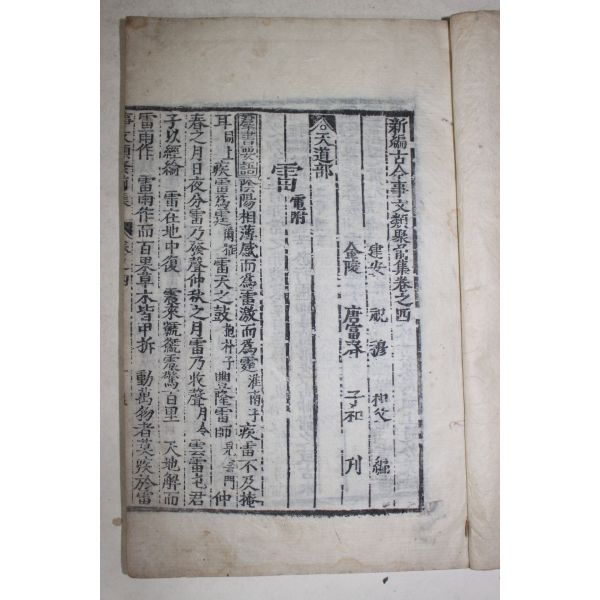 新編古今事文類聚前集卷之四
建安 祝穆 和父 編
金陵 唐富春 子和 刊
天道部
雷 電附
羣書要語 陰陽相薄感而爲雷激而爲霆 淮南子 疾雷不及掩
耳 疾雷爲霆 爾雅 雷天之鼓 抱朴子 豐隆雷師 仲
春之月日夜分雷乃發聲仲秋之月雷乃收聲 月令 雲雷屯君
子以經綸 雷在地中復 震來虩虩震驚百里 天地解而
雷雨作 雷雨作而百果草木皆甲拆 動萬物者莫疾於雷